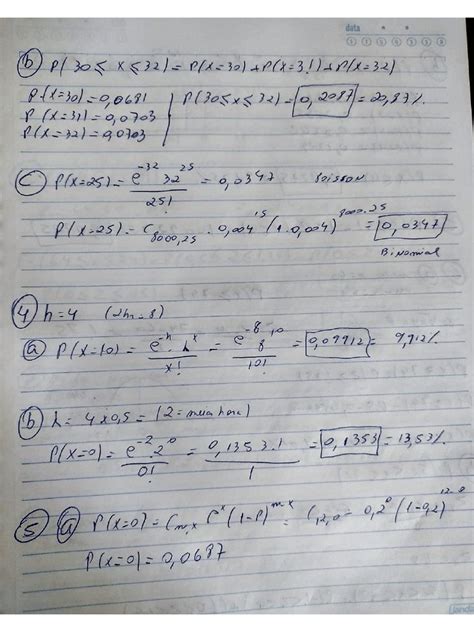 data
b) P(30 ≤ X ≤ 32) = P(X=30) + P(X=31) + P(X=32)
P(X=30) = 0,0681 | P(30 ≤ X ≤ 32) = 0,2087 = 20,87%
P(X=31) = 0,0703
P(X=32) = 0,0703
c) P(X=25) = e^-32 32^25 / 25! = 0,0347 Poisson
P(X=25) = C8000,25 . 0,004^15 (1-0,004)^8000-25 = 0,0347
Binomial
4) λ=4 (2hr=8)
a) P(X=10) = e^-λ . λ^x / x! = e^-8 8^10 / 10! = 0,09912 = 9,912%
b) λ = 4x0,5 = (2 = meia hora)
P(X=0) = e^-2 . 2^0 / 0! = 0,1353.1 / 1 = 0,1353 = 13,53%
5) a) P(X=0) = Cn,x P^x (1-P)^n-x = C12,0 = 0,2^0 (1-0,2)^12-0
P(X=0) = 0,0687